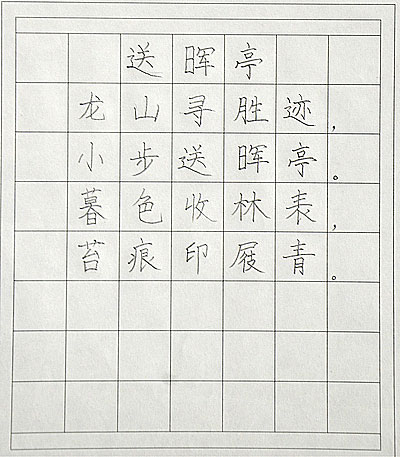 送晖亭
龙山寻胜迹，
小步送晖亭。
暮色收林表，
苔痕印屐青。